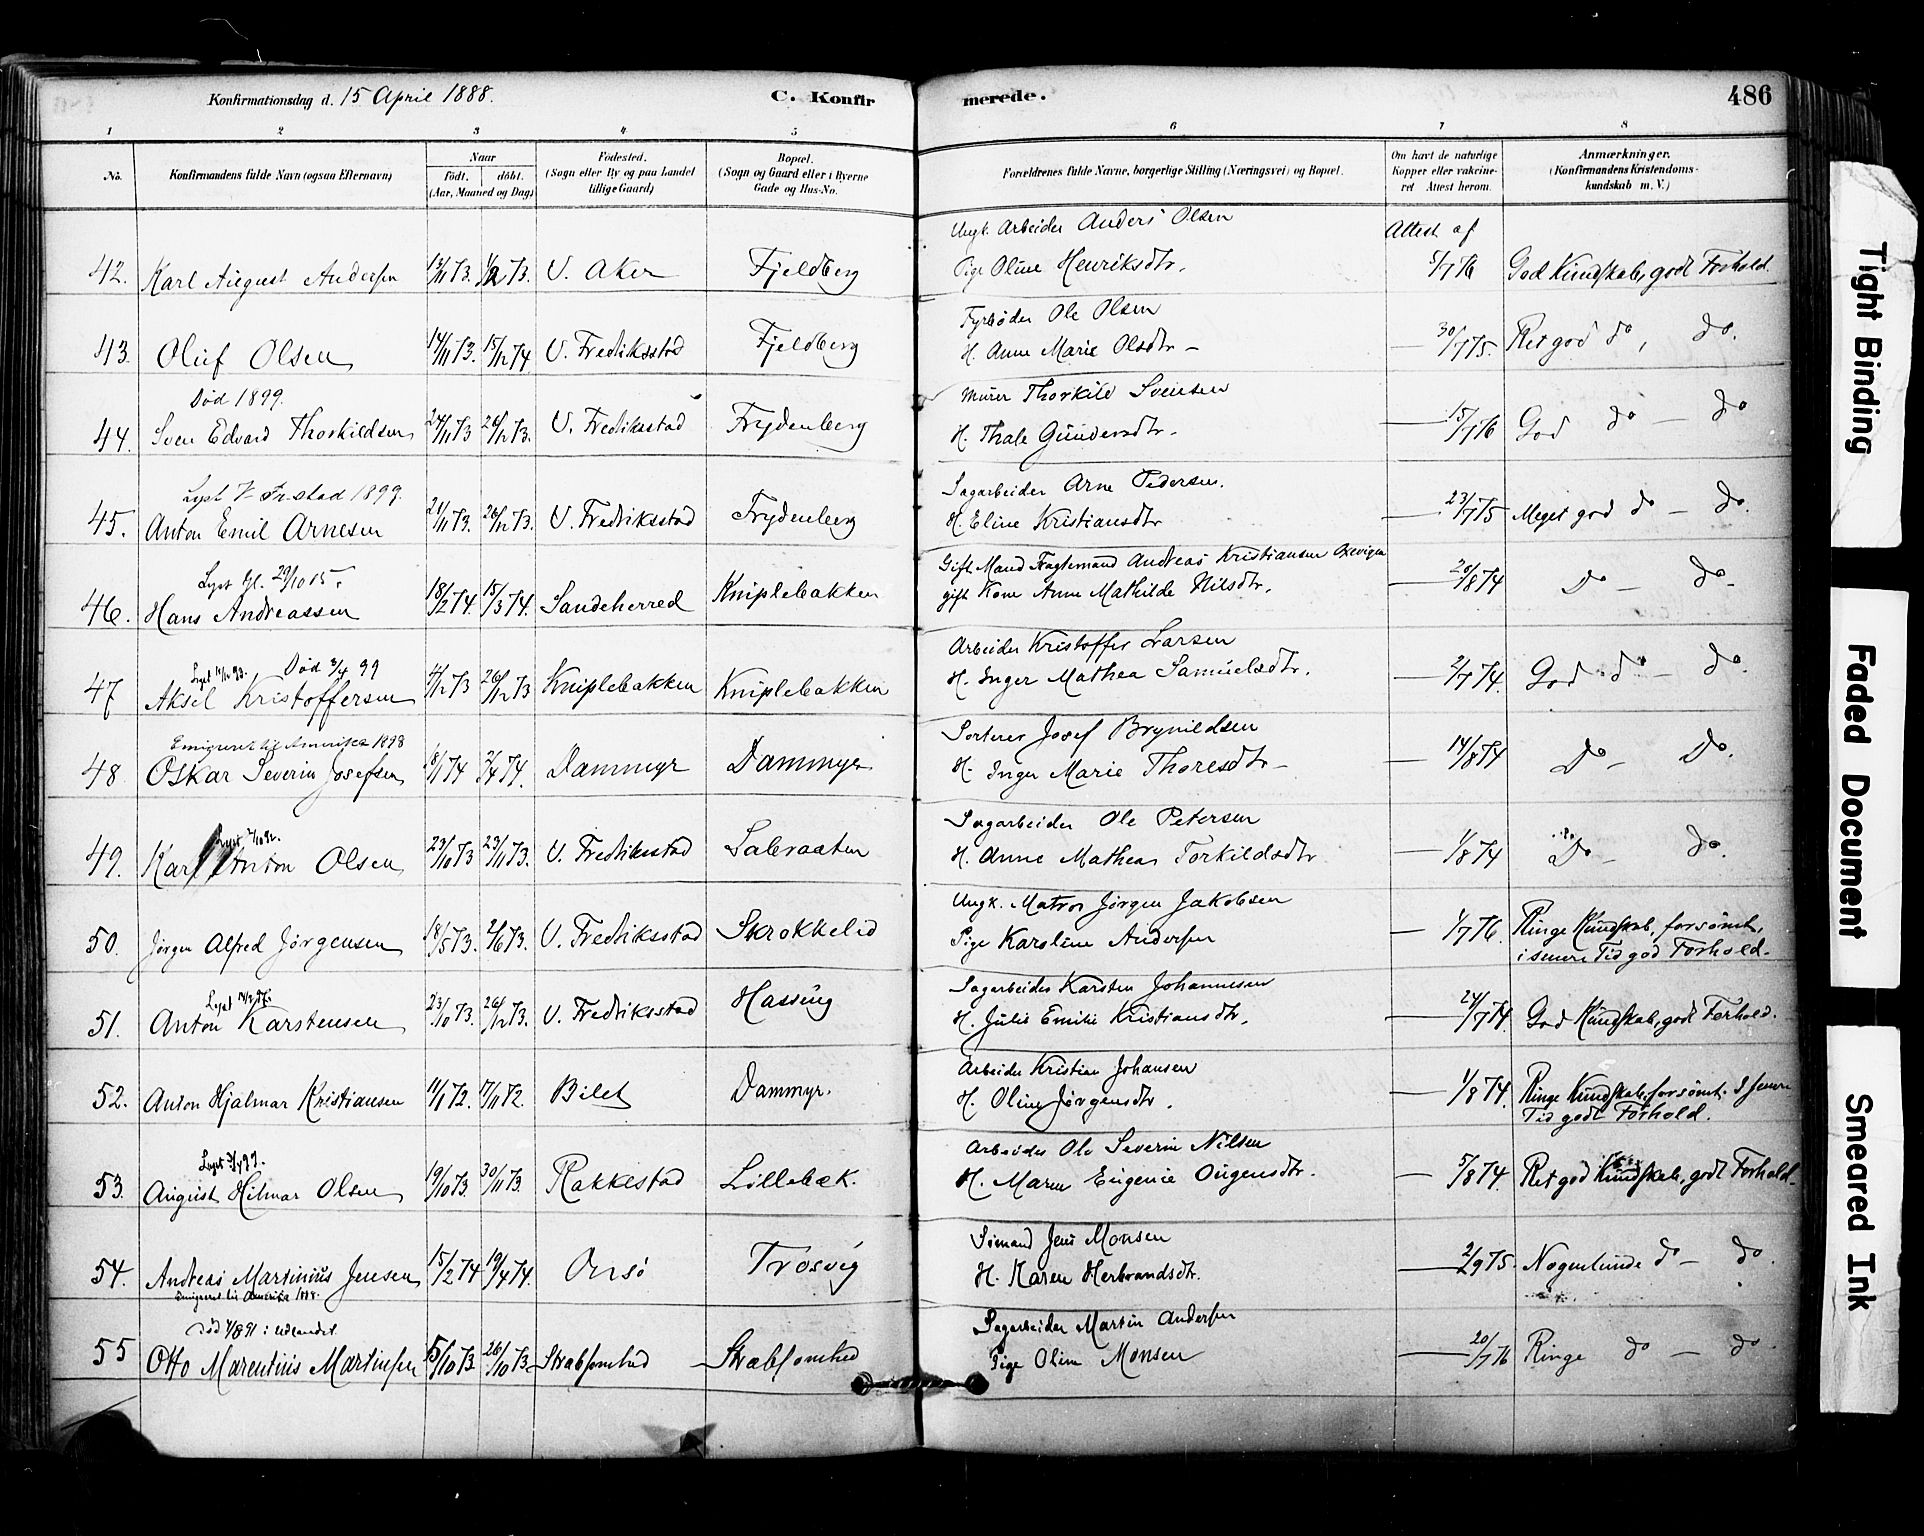 Konfirmationsdag d. 15 April 1888.
C. Konfirmerede.
486
1 2 3 4 5 6 7 8
No.
Konfirmandens fulde Navn (ogsaa Efternavn)
Naar
født. døbt.
(Aar, Maaned og Dag)
Fødested.
(Sogn eller By og paa Landet
tillige Gaard)
Bopæl.
(Sogn og Gaard eller i Byerne
Gade og Hus-No.
Forældrenes fulde Navne, borgerlige Stilling (Næringsvei) og Bopæl.
Om havt de naturlige
Kopper eller vakcine-
ret Attest herom.
Anmærkninger.
(Konfirmandens Kristendoms-
kundskab m. V.)
Ungk. Arbeider Anders Olsen Attest af
42. Karl August Andersen 13/11 73. V. Aker Fjeldberg Pige Oline Henriksdtr. 5/7 76 God Kundskab, godt Forhold.
Fyrbøder Ole Olsen
43. Oluf Olsen 14/11 73. 15/12 74 V. Fredriksstad Fjeldberg H. Anne Marie Olsdtr – 30/7 75. Ret god do, do.
Død 1899. Murer Thorkild Svensen
44. Sven Edvard Thorkildsen 24/11 73 26/12 73. V. Fredriksstad Frydenberg H. Thale Gundersdtr. 15/7 76 God do – do
Lyst V. Fr.stad 1899. Sagarbeider Arne Pedersen.
45. Anton Emil Arnesen 21/11 73. 26/12 73. V. Fredriksstad Frydenberg H. Eline Kristiansdtr 23/7 75 Meget god do – do.
Lyst Gl. 29/10 15. Gift Mand Fragtemand Andreas Kristiansen Oxevigen
46. Hans Andreassen 18/2 74. 15/3 74. Sandeherred Kniplebakken gift Kone Anne Mathilde Nilsdtr. 20/8 74 Do – do.
Død 3/4 99 Arbeider Kristoffer Larsen
47 Aksel Kristoffersen 4/12 73 26/12 73 Kniplebakken Kniplebakken H. Inger Mathea Samuelsdtr. 2/7 74. God do – do.
Emigreret til Amerika 1898 Sorterer Josef Brynildsen
48. Oskar Severin Josefsen 18/1 74 2/4 74. Dammyr Dammyr H. Inger Marie Thoresdtr – 14/8 74 Do – Do.
Lyst 7/10 92. Sagarbeider Ole Petersen
49. Karl Anton Olsen 23/10 73 23/11 73. V. Fredriksstad Labraaten H. Anne Mathea Torkildsdtr 1/8 74 Do – do.
Ungk. Matros Jørgen Jakobsen
50. Jørgen Alfred Jørgensen 18/5 73. 2/6 73. V. Fredriksstad Skrokkelid Pige Karoline Andersen 1/7 76. Ringe Kundskab, forsømt,
i senere Tid god Forhold.
Lyst Sagarbeider Karsten Johannesen
51. Anton Karstensen 23/10 73. 26/12 73. V. Fredriksstad Hassing H. Julie Emilie Kristiansdtr. 24/7 74. God Kundskab, godt Forhold.
Arbeider Kristian Johansen
52. Anton Hjalmar Kristiansen 11/1 72. 17/11 72. Bilet Dammyr. H. Oline Jørgensdtr. 1/8 74. Ringe Kundskab, forsømt. I senere
Tid godt Forhold.
Lyst 3/4 99. Arbeider Ole Severin Nilsen
53. August Hilmar Olsen 19/10 73. 30/11 73. Rakkestad Lillebæk. H. Maren Eugenie Eugensdtr. 5/8 74. Ret god Kundskab, godt Forhold.
Sømand Jens Monsen
54. Andreas Martinius Jensen 15/2 74 19/4 74. Onsø Trosvig H. Karen Herbrandsdtr. 2/9 75. Nogenlunde do – do.
Emigreret til Amerika 1888.
Død 4/8 91 i Udlandet. Sagarbeider Martin Andersen
55 Otto Marentius Martinsen 5/10 73 26/10 73 Skabsomhed Skabsomhed Pige Oline Monsen 20/7 76 Ringe do – do.
Tight Binding
Faded Document
Smeared Ink